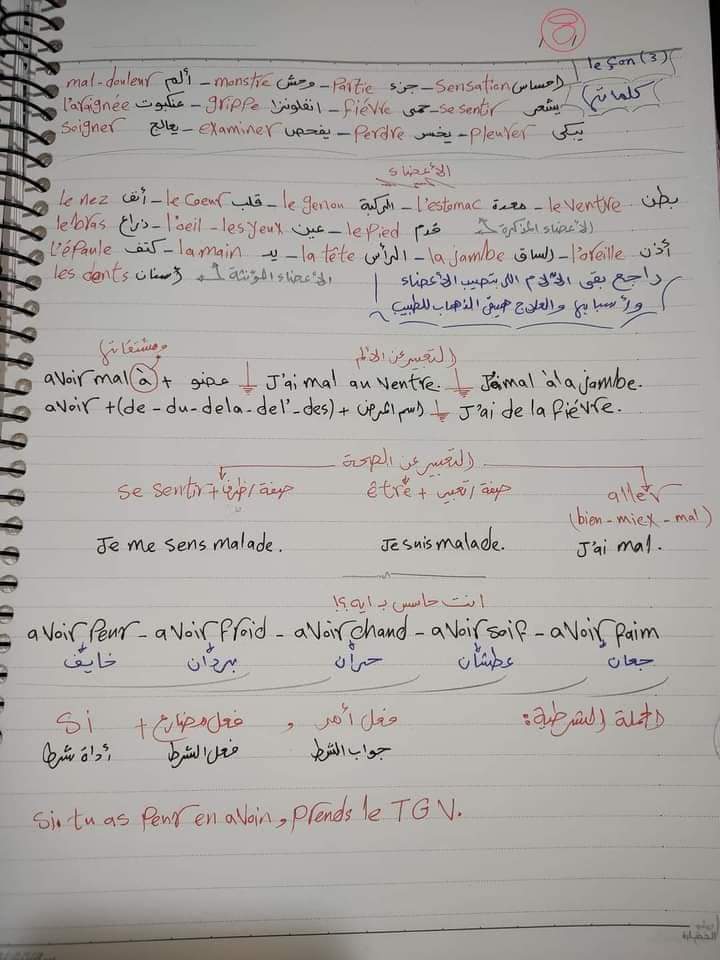 leçon (3)
كلماتها
mal-douleur ألم - monstre وحش - Partie جزء - Sensation احساس
l'araignée عنكبوت - grippe انفلونزا - fiévre حمى - se sentir يشعر
soigner يعالج - examiner يفحص - Perdre يخسر - pleurer يبكى
الأعضاء
le nez أنف - le Coeur قلب - le genou الركبة - l'estomac معدة - le Ventre بطن
le bras ذراع - l'oeil - les yeux عين - le Pied قدم الأعضاء المذكرة
l'épaule كتف - la main يد - la tête الرأس - la jambe الساق - l'oreille أذن
les dents أسنان الأعضاء المؤنثة
راجع بقى الآلام اللى بتصيب الأعضاء
وأسبابها والعلاج هيبقى الذهاب للطبيب
التعبير عن الألم
ومشتقاتها
avoir mal à + عضو J'ai mal au ventre. J'ai mal à la jambe.
avoir + (de - du - de la - de l' - des) + اسم المرض J'ai de la fiévre.
التعبير عن الصحة
se sentir + صفة/ظرف être + صفة/تعبير aller
(bien - miex - mal)
Je me sens malade. Je suis malade. J'ai mal.
انت حاسس بـ ايه؟!
avoir Peur - avoir froid - avoir chand - avoir soif - avoir faim
خايف بردان حران عطشان جعان
الجملة الشرطية: فعل أمر , فعل مضارع + Si
جواب الشرط فعل الشرط أداة شرط
Si tu as Peur en avoin, prends le TGV.